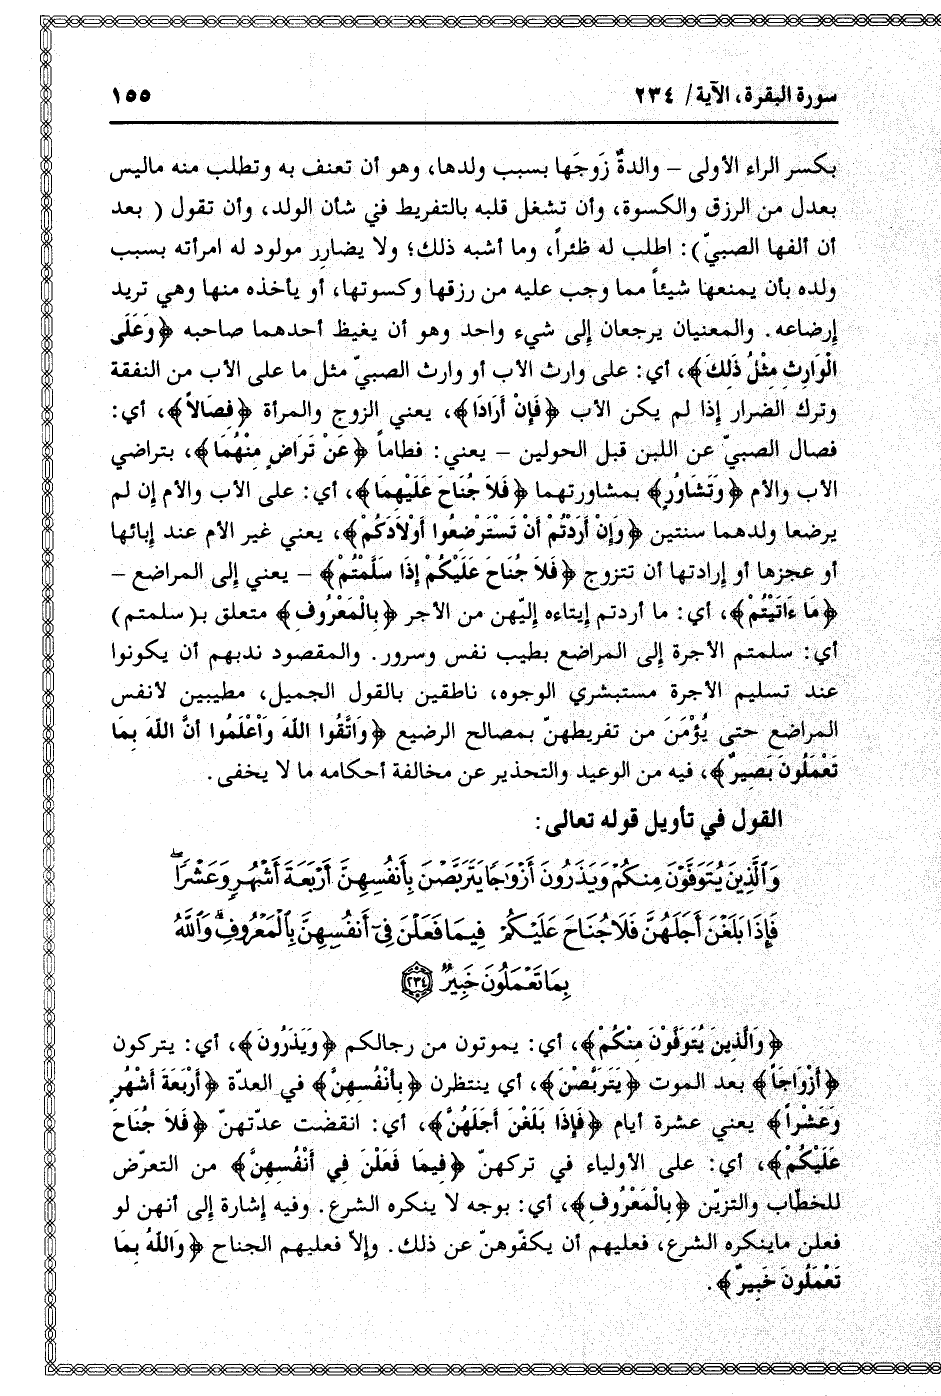 سورة البقرة، الآية/ ٢٣٤
١٥٥
بكسر الراء الأولى – والدةٌ زَوجَها بسبب ولدها، وهو أن تعنف به وتطلب منه ماليس
بعدل من الرزق والكسوة، وأن تشغل قلبه بالتفريط في شأن الولد، وأن تقول ( بعد
أن ألفها الصبيّ): اطلب له ظئراً، وما أشبه ذلك؛ ولا يضارر مولود له امرأته بسبب
ولده بأن يمنعها شيئاً مما وجب عليه من رزقها وكسوتها، أو يأخذه منها وهي تريد
إرضاعه. والمعنيان يرجعان إلى شيء واحد وهو أن يغيظ أحدهما صاحبه ﴿وَعَلَى
الْوَارِثِ مِثْلُ ذَلِكَ﴾، أي: على وارث الأب أو وارث الصبيّ مثل ما على الأب من النفقة
وترك الضرار إذا لم يكن الأب ﴿فَإِنْ أَرَادَا﴾، يعني الزوج والمرأة ﴿فِصَالاً﴾، أي:
فصال الصبيّ عن اللبن قبل الحولين – يعني: فطاماً ﴿عَنْ تَرَاضٍ مِنْهُمَا﴾، بتراضي
الأب والأم ﴿وَتَشَاوُرٍ﴾ بمشاورتهما ﴿فَلاَ جُنَاحَ عَلَيْهِمَا﴾، أي: على الأب والأم إن لم
يرضعا ولدهما سنتين ﴿وَإِنْ أَرَدْتُمْ أَنْ تَسْتَرْضِعُوا أَوْلاَدَكُمْ﴾، يعني غير الأم عند إبائها
أو عجزها أو إرادتها أن تتزوج ﴿فَلاَ جُنَاحَ عَلَيْكُمْ إِذَا سَلَّمْتُمْ﴾ – يعني إلى المراضع –
﴿مَا ءَاتَيْتُمْ﴾، أي: ما أردتم إيتاءه إليّهن من الأجر ﴿بِالْمَعْرُوفِ﴾ متعلق بـ(سلمتم)
أي: سلمتم الأجرة إلى المراضع بطيب نفس وسرور. والمقصود ندبهم أن يكونوا
عند تسليم الأجرة مستبشري الوجوه، ناطقين بالقول الجميل، مطيبين لأنفس
المراضع حتى يُؤْمَنَ من تفريطهنّ بمصالح الرضيع ﴿وَاتَّقُوا اللَّهَ وَاَعْلَمُوا أَنَّ اللَّهَ بِمَا
تَعْمَلُونَ بَصِيرٌ﴾، فيه من الوعيد والتحذير عن مخالفة أحكامه ما لا يخفى.
القول في تأويل قوله تعالى:
وَٱلَّذِينَ يُتَوَفَّوْنَ مِنكُمْ وَيَذَرُونَ أَزْوَٰجًا يَتَرَبَّصْنَ بِأَنفُسِهِنَّ أَرْبَعَةَ أَشْهُرٍ وَعَشْرًا ۖ
فَإِذَا بَلَغْنَ أَجَلَهُنَّ فَلَا جُنَاحَ عَلَيْكُمْ فِيمَا فَعَلْنَ فِىٓ أَنفُسِهِنَّ بِٱلْمَعْرُوفِ ۗ وَٱللَّهُ
بِمَا تَعْمَلُونَ خَبِيرٌ ﴿٢٣٤﴾
﴿وَالَّذِينَ يُتَوَفَّوْنَ مِنْكُمْ﴾، أي: يموتون من رجالكم ﴿وَيَذَرُونَ﴾، أي: يتركون
﴿أَزْوَاجَاً﴾ بعد الموت ﴿يَتَرَبَّصْنَ﴾، أي ينتظرن ﴿بِأَنْفُسِهِنَّ﴾ في العدّة ﴿أَرْبَعَةَ أَشْهُرٍ
وَعَشْراً﴾ يعني عشرة أيام ﴿فَإِذَا بَلَغْنَ أَجَلَهُنَّ﴾، أي: انقضت عدّتهنّ ﴿فَلاَ جُنَاحَ
عَلَيْكُمْ﴾، أي: على الأولياء في تركهنّ ﴿فِيمَا فَعَلْنَ فِي أَنْفُسِهِنَّ﴾ من التعرّض
للخطّاب والتزيّن ﴿بِالْمَعْرُوفِ﴾، أي: بوجه لا ينكره الشرع. وفيه إشارة إلى أنهن لو
فعلن ماينكره الشرع، فعليهم أن يكفّوهنّ عن ذلك. وإلاّ فعليهم الجناح ﴿وَاللَّهُ بِمَا
تَعْمَلُونَ خَبِيرٌ﴾.